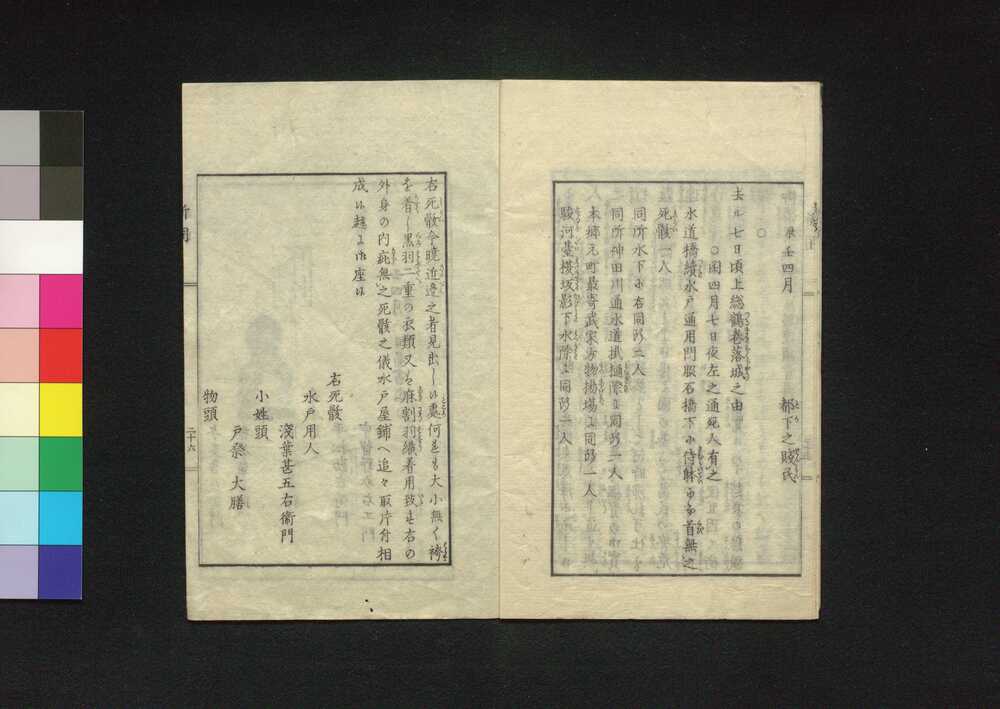 辰壬四月
都下之賤民
○
去ル七日頃上総鶴巻落城之由
○閏四月七日夜左之通死人有之
水道橋續水戸通用門脇石橋下ニ侍躰ニ而首無之
死骸一人
同所水下ニ右同断二人
同所神田川通水道抵樋際ニ同断一人
本郷元町最寄武家方物揚場ニ同断一人
駿河臺横坂影下水際ニ同断一人
右死骸今曉近邊之者見出し候處何をも大小無く袴
を着し黒羽二重の衣類又は麻割羽織着用致し右の
外身の内疵無之死骸之儀水戸屋鋪へ追々取片付相
成候趣に御座候
右死骸
水戸用人
淺葉甚五右衛門
小姓頭
戸祭大膳
物頭
新聞
二十六